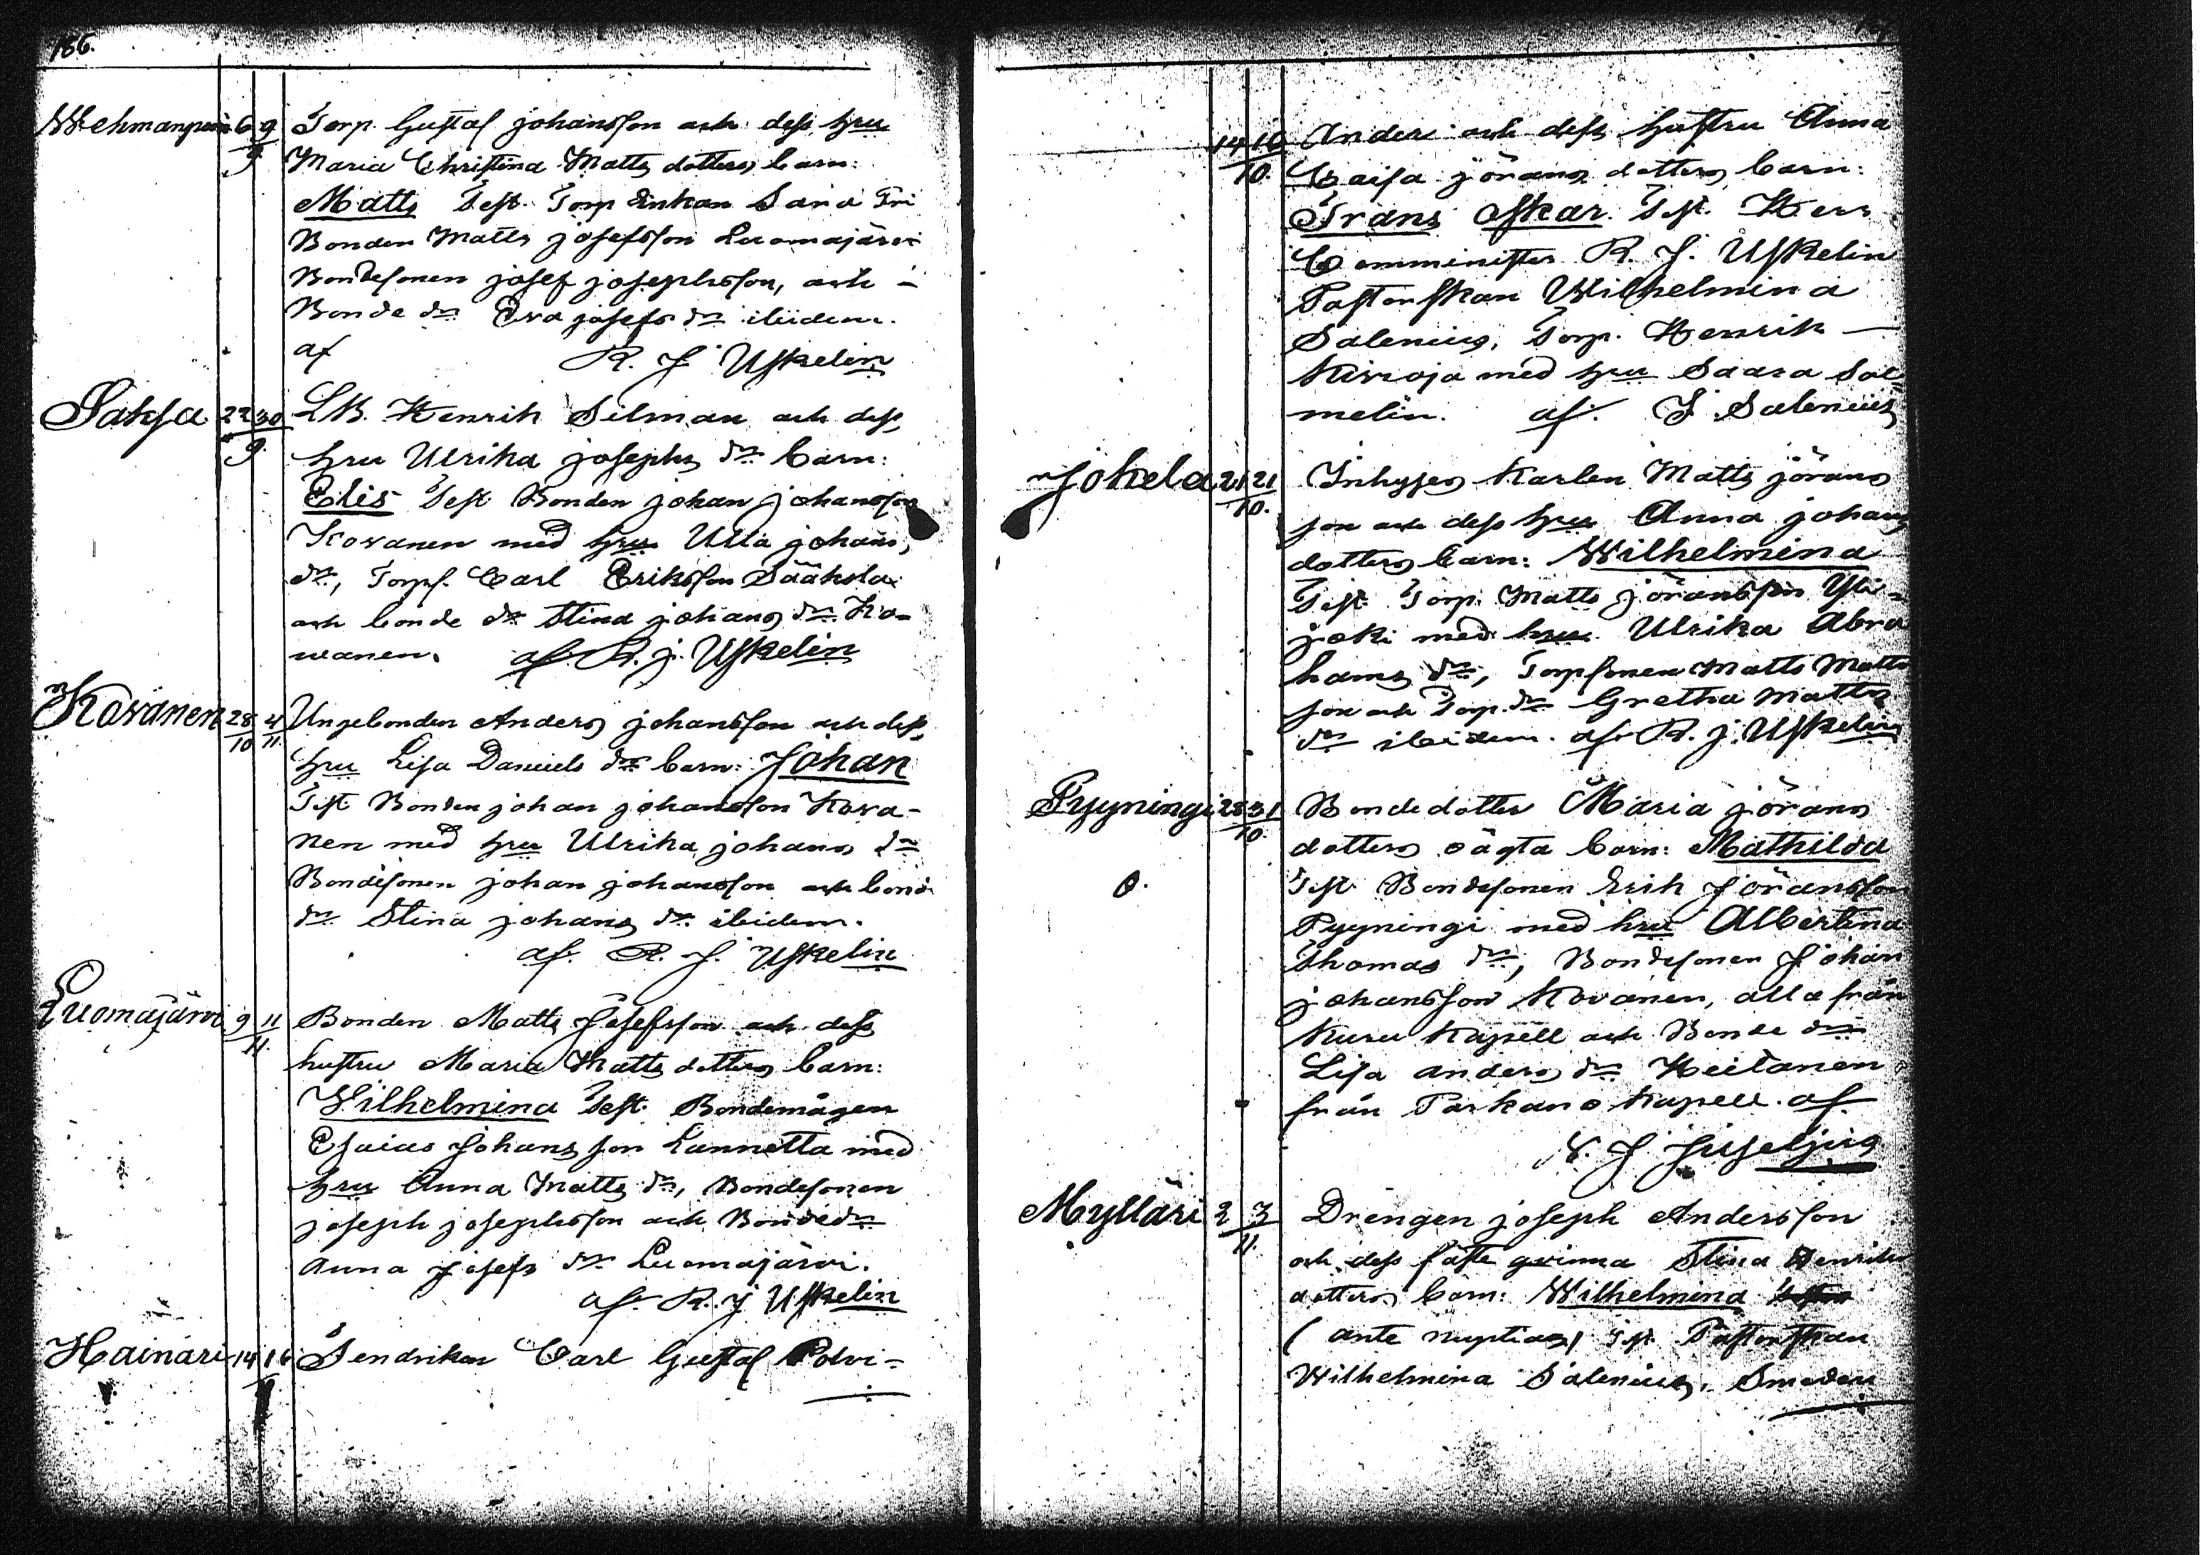 186.
Wehmanperä 6 9/9 Torp. Gustaf Johansson och dess hru
Maria Christina Matts dotters barn:
Matts Test. Torp Enkan Saria
Bonden Matts Josefsson Luomajärvi
Bondesonen Josef Josephsson, och
Bonde dr Eva Josefs dr ibidem.
af R. J. Uskelin
Saksa 22 30/9 LB. Henrik Selman och dess
hru Ulrika Josephs dr barn:
Elis Test Bonden Johan Johansson
Kovanen med hru Ulla Johans
dr, Torpf. Carl Eriksson Sääksla
och bonde dr Stina Johans dr Ko-
wanen. af R. J. Uskelin
Kovanen 28/10 4/11 Ungebonden Anders Johansson och dess
hru Lisa Daniels dr barn: Johan
Test Bonden Johan Johansson Kova-
nen med hru Ulrika Johans dr
Bondesonen Johan Johansson och bond
dr Stina Johans dr ibidem.
af. R. J. Uskelin
Luomajärvi 9 11/11. Bonden Matts Josefsson och dess
hustru Maria Matts dotters barn:
Wilhelmina Test. Bondemågen
Esaias Johansson Lannetta med
hru Anna Matts dr, Bondesonen
Joseph Josephsson och Bonde dr
Anna Josefs dr Luomajärvi.
af. R. J Uskelin
Hainari 14 16 Sendrikar Carl Gustaf Polvi-
14 16/10. Ander och dess hustru Anna
Caisa Jörans dotters barn:
Frans Oskar. Test. Herr
Comminister R. J. Uskelin
Pastorskan Wilhelmina
Salenius, Torp. Henrik
Kivioja med hru Saara Sal=
melin. af. J Salenius
Jokela 21 21/10. Inhyses Karlen Matts Jörans
son och dess hru Anna Johans
dotters barn: Wilhelmina
Test. Torp. Matts Jöransson Yli=
joki med hru Ulrika Abra
hams dr, Torpsonen Matts Matts
son och Torp. dr Gretha Matts
dr ibidem. af R. J. Uskelin
Pyyningi 28 31/10. Bondedotter Maria Jörans
dotters oägta barn: Mathilda
O. Test. Bondesonen Erik Jöransson
Pyyningi med hru Albertina
Thomas dr, Bondesonen Johan
Johansson Kovanen, alla från
Kuru Kapell och Bonde dr
Lisa Anders dr Heitanen
från Parkano Kapell. af.
N. J. Juseljus
Mylläri 2 3/11. Drengen Joseph Andersson
och dess fäste qvinna Stina Henriks
dotters barn: Wilhelmina
(ante nuptias) Test. Pastorskan
Wilhelmina Salenius, Smeden